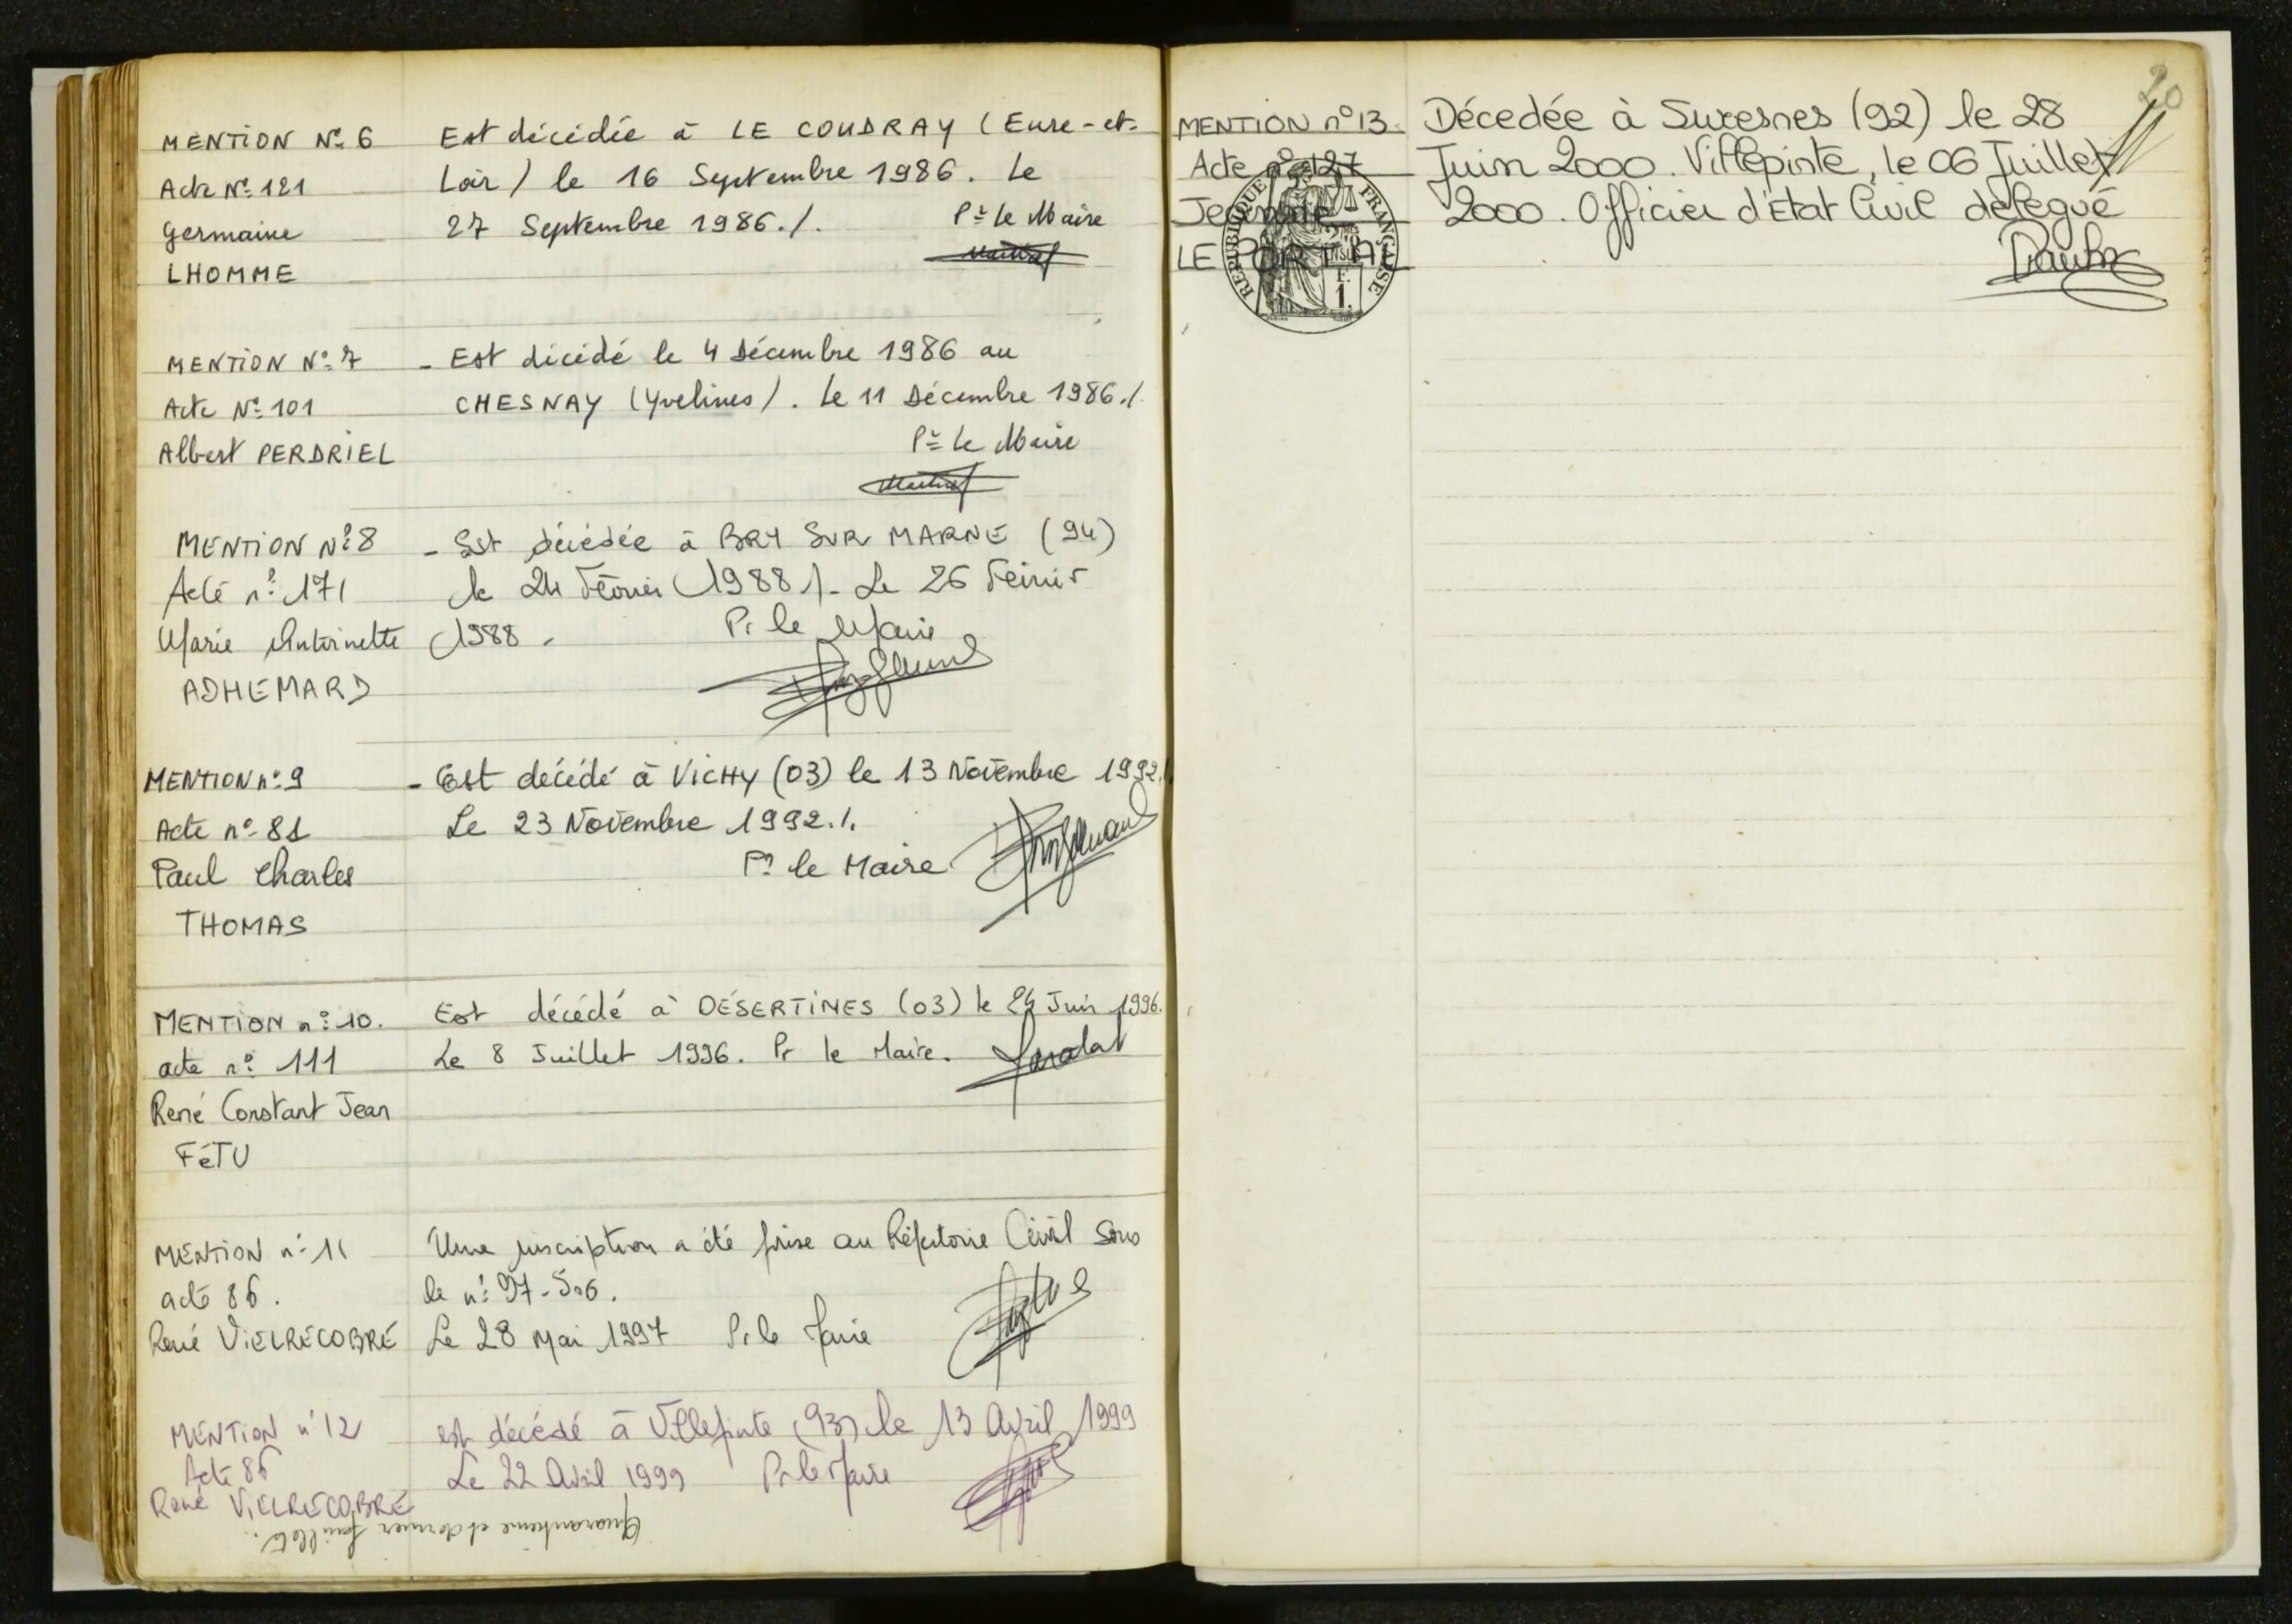 MENTION N° 6
Acte N° 121
Germaine
LHOMME
Est décédée à LE COUDRAY (Eure-et-
Loir) le 16 Septembre 1986. Le
27 Septembre 1986./.
Pr le Maire
MENTION N° 7
Acte N° 101
Albert PERDRIEL
- Est décédé le 4 Décembre 1986 au
CHESNAY (Yvelines). Le 11 Décembre 1986./.
Pr le Maire
MENTION N° 8
Acte n° 171
Marie Antoinette
ADHEMARD
- Est décédée à BRY SUR MARNE (94)
le 24 Février 1988/- Le 26 Février
1988.
Pr le Maire
MENTION n° 9
Acte n° 81
Paul Charles
THOMAS
- Est décédé à VICHY (03) le 13 Novembre 1992./
Le 23 Novembre 1992./.
Pr le Maire
MENTION n° 10.
acte n° 111
René Constant Jean
FéTU
Est décédé à DÉSERTINES (03) le 24 Juin 1996.
Le 8 Juillet 1996. Pr le Maire.
MENTION n° 11
acte 86.
René VIELRECOBRE
Une inscription a été prise au Répertoire Civil sous
le n° 97-506.
Le 28 Mai 1997 Pr le Maire
MENTION n° 12
Acte 86
René VIELRECOBRE
est décédé à Villepinte (93) le 13 Avril 1999
Le 22 Avril 1999 Pr le Maire
Quarantième et dernier feuillet.
20
MENTION n° 13.
Acte n° 127
Jeanne
LE PORTAL
Décedée à Suresnes (92) le 28
Juin 2000. Villepinte, le 06 Juillet
2000. Officier d'Etat Civil délégué
RÉPUBLIQUE FRANÇAISE